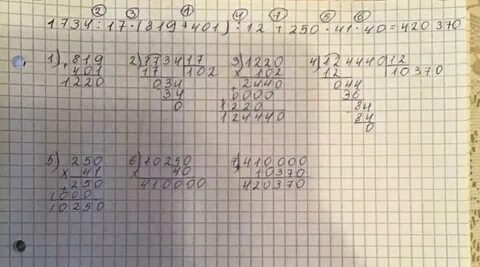 2 3 1 4 7 5 6
1734 : 17 · (819 + 401) : 12 + 250 · 41 · 40 = 420 370
1) 819 2) 1734 17 3) 1220 4) 124440 12
+ 401 17 102 x 102 12 10370
1220 034 2440 044
34 0000 36
0 1220 84
124440 84
0
5) 250 6) 10250 7) 410000
x 41 x 40 + 10370
250 410000 420370
1000
10250